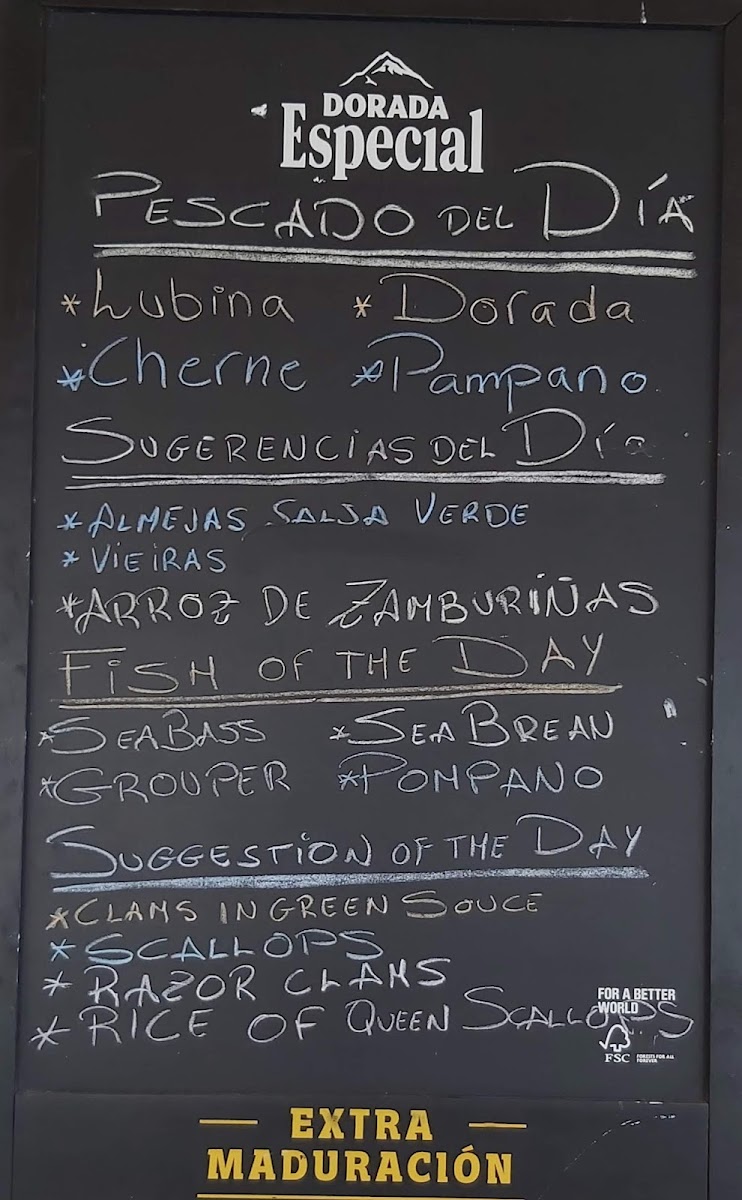 DORADA
Especial
PESCADO DEL DÍA
* Lubina * Dorada
* Cherne * Pampano
SUGERENCIAS DEL Día
* ALMEJAS SALSA VERDE
* VIEIRAS
* ARROZ DE ZAMBURIÑAS
FISH OF THE DAY
* SEA BASS * SEA BREAN
* GROUPER * POMPANO
SUGGESTION OF THE DAY
* CLAMS IN GREEN SOUCE
* SCALLOPS
* RAZOR CLAMS
* RICE OF QUEEN SCALLOPS
FOR A BETTER
WORLD
FSC FORESTS FOR ALL
FOREVER
EXTRA
MADURACIÓN